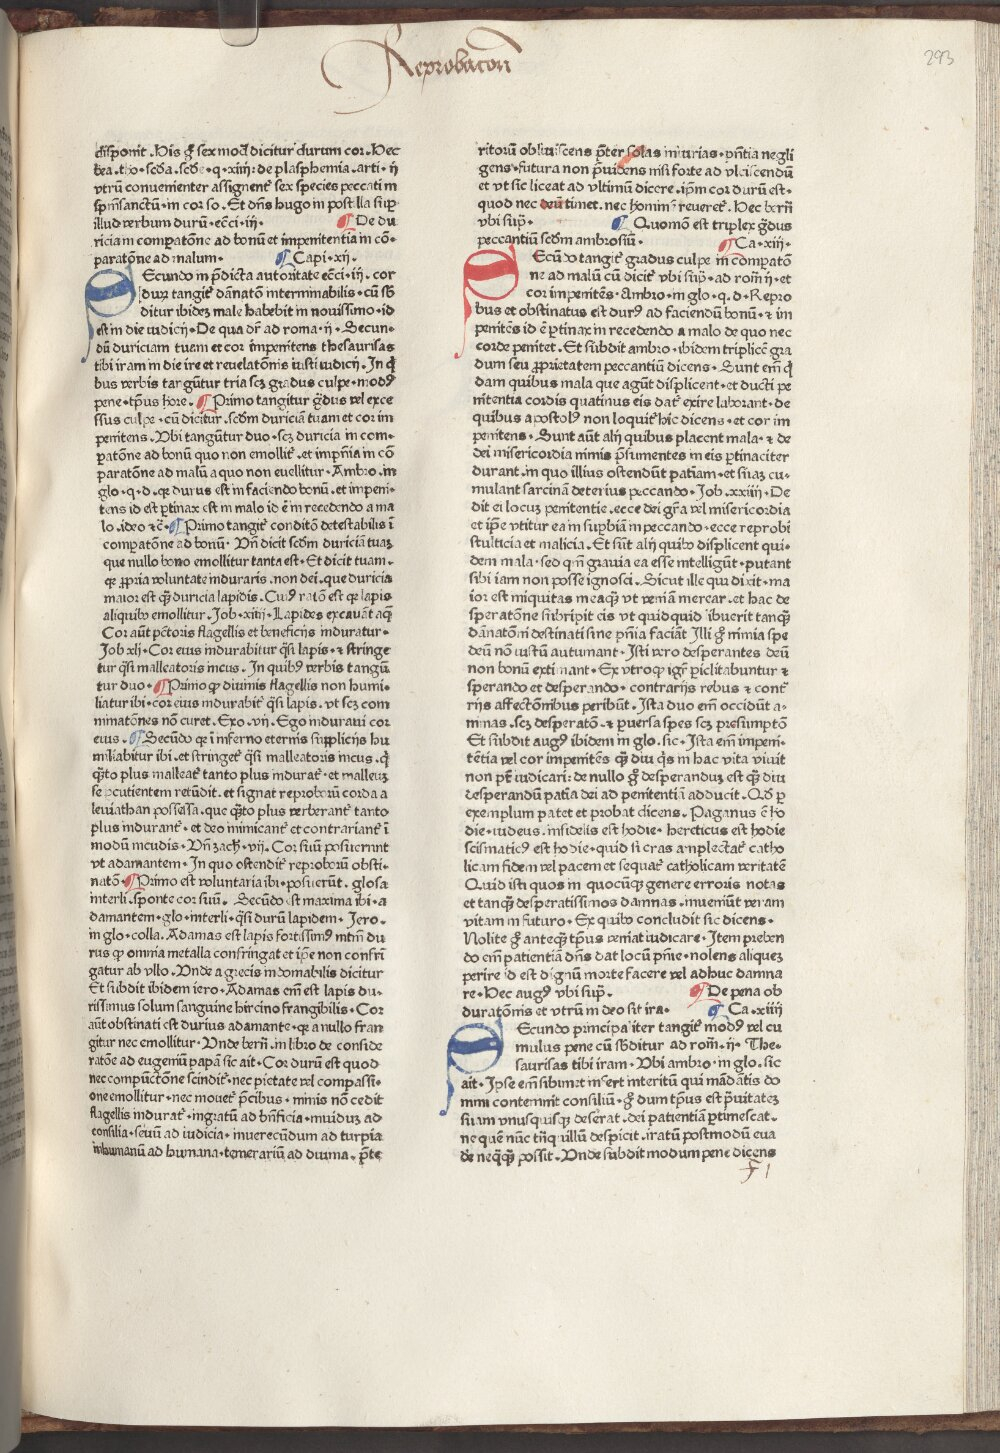 Reprobacoū
293
disponit . His g̊ sex mod̕ dicitur durum cor . Hec
bea . tho . scd̄a . scd̄e . q . xiiij . de plasphemia . arti . ij
vtrū conuenienter assignent̕ sex species peccati in
spm̄sanctū . in cor so . Et dn̄s hugo in postilla sup̄
illud verbum durū . ecc̄i . iij . ¶ De du
ricia in comparatōne ad bonū et impenitentia in cō-
paratōne ad malum . ¶ Capi . xij .
Secundo in p̄dicta autoritate ecc̄i . iij . cor
durꝫ tangit̕ dānatōm interminabilis . cū sb̄
ditur ibideꝫ male habebit in nouissimo . id
est in die iudicij . De qua dr̄ ad roma . ij . Secun-
dū duriciam tuam et cor impenitens thesaurisas
tibi iram in die ire et reuelatōnis iusti iudicij . In q̄
bus verbis tangūtur tria scꝫ gradus culpe . mod̕
pene . tp̄us hore . ¶ Primo tangitur gͣdus vel exce
ssus culpe . cū dicitur . scd̄m duriciā tuam et cor im
penitens . Vbi tangūtur duo . scꝫ duricia in com-
paratōne ad bonū quo non emollit̕ . et impn̄ia in cō
paratōne ad malū a quo non euellitur . Ambro . in
glo . q . d . qꝛ durus est in faciendo bonū . et impeni-
tens id est ꝑtinax est in malo id ē in recedendo a ma
lo . ideo ⁊c̄ . ¶ Primo tangit̕ conditō detestabilis ī
comparatōne ad bonū . Vn̄ dicit scd̄m duriciā tuaꝫ
que nullo bono emollitur tanta est . Et dicit tuam .
qꝛ ꝓpria voluntate induraris . non dei . que duricia
maior est qͣꝫ duricia lapidis . Cui̕ ratō est qꝛ lapis
aliquibꝰ emollitur . Job . xiiij . Lapides excauāt aqͣꝫ
Cor aūt pc̄toris flagellis et beneficijs induratur .
Job xlj . Cor eius indurabitur q̄si lapis . ⁊ stringe
tur q̄si malleatoris incus . In quibꝰ verbis tangū
tur duo . ¶ Primo qꝙ diuinis flagellis non humi-
liatur ibi . cor eius indurabit̕ q̄si lapis . vt scꝫ com
minatōnes nō curet . Exo . vij . Ego induraui cor
eius . ¶ Secūdo qꝛ in inferno eternis supplicijs hu
miliabitur ibi . et stringet̕ q̄si malleatoris incus . q̄
qͣꝫto plus malleat̕ tanto plus indurat̕ . et malleuꝫ
se ꝑcutientem retūdit . et signat reproborū corda a
leuiathan possessa . que qͣꝫto plus verberant̕ tanto
plus indurant̕ . et deo inimicant̕ et contrariant̕ ī
modū incudis . Vn̄ zach̕ . vij . Cor suū posuerunt
vt adamantem . In quo ostendit̕ reproborū obsti-
natō . ¶ Primo est voluntaria ibi . posuerūt . glosa
interli . sponte cor suū . Secūdo est maxima ibi . a
damantem . glo . interli . q̄si durū lapidem . Jero .
in glo . colla . Adamas est lapis fortissimꝰ intm̄ du
rus qꝙ omnia metalla confringat et ip̄e non confri
gatur ab vllo . Vnde a grecis indomabilis dicitur
Et subdit ibidem iero . Adamas em̄ est lapis du-
rissimus solum sanguine hircino frangibilis . Cor
aūt obstinati est durius adamante . qꝛ a nullo fran
gitur nec emollitur . Vnde bern̄ . in libro de conside
ratōe ad eugeniū papā sic ait . Cor durū est quod
nec compūctōne scindit̕ . nec pietate vel compassi-
one emollitur . nec mouet̕ p̄cibus . minis nō cedit
flagellis indurat̕ . ingratū ad bn̄ficia . inuiduꝫ ad
consilia . seuū ad iudicia . inuerecūdum ad turpia
inhumanū ad humana . temerariū ad diuina . p̄te
ritorū obliuiscens p̄ter solas iniurias . pn̄tia negli
gens . futura non p̄uidens nisi forte ad vlciscendū
et vt sic liceat ad vltimū dicere . ip̄m cor durū est .
quod nec deū timet . nec homīes reueret̕ . Hec bern̄
vbi sup̄ . ¶ Quomō est triplex gͣdus
peccantiū scd̄m ambrosiū . ¶ Ca . xiij .
Secūdo tangit̕ gradus culpe in compatōn
ne ad malū cū dicit̕ vbi sup̄ . ad rom̄ ij . et
cor impenitēs . Ambro . in glo . q . d . Repro
bus et obstinatus est durꝰ ad faciendū bonū . ⁊ im
penitēs id ē ꝑtinax in recedendo a malo de quo nec
corde penitet . Et subdit ambro . ibidem triplicē gra
dum seu ꝓprietatem peccantiū dicens . Sunt em̄ q̄
dam quibus mala que agūt displicent . et ducti pe
nitentia cordis quatinus eis dat̕ exire laborant . de
quibus apostolꝰ non loquit̕ hic dicens . et cor im
penitens . Sunt aūt alij quibus placent mala . ⁊ de
dei misericordia nimis p̄sumentes in eis ꝑtinaciter
durant . in quo illius ostendūt patīam . et suaꝫ cu-
mulant sarcinā deterius peccando . Job . xxiiij . De
dit ei locuꝫ penitentie . ecce dei gr̄a vel misericordia
et ip̄e vtitur ea in supb̄iā in peccando . ecce reprobi
stulticia et malicia . Et sūt alij quibꝰ displicent qui-
dem mala . sed qm̄ grauia ea esse intelligūt . putant
sibi iam non posse ignosci . Sicut ille qui dixit . ma
ior est iniquitas mea qͣꝫ vt veniā merear . et hac de
speratōne subripit eis vt quidquid libuerit tanqͣꝫ
dānatōni destinati sine pn̄ia faciāt Illi g̊ nimia spe
deū nō iustū autumant . Isti vero desperantes deū
non bonū extimant . Ex vtroqꝫ igr̄ periclitabuntur ⁊
sperando et desperando . contrarijs rebus ⁊ cont̕
rijs affectōnibus peribūt . Ista duo em̄ occidūt a-
nimas . scꝫ desperatō . ⁊ ꝑuersa spes scꝫ presumptō
Et subdit augꝰ ibidem in glo . sic . Ista em̄ impeni-
tētia vel cor impenitēs qͣꝫ diu q̄s in hac vita viuit
non pt̄ iudicari : de nullo g̊ desperanduꝫ est qͣꝫ diu
desperandū patīa dei ad penitentiā adducit . Qd̄ ꝑ
exemplum patet et probat dicens . Paganus ē ho
die . iudeus . infidelis est hodie . hereticus est hodie
scismaticꝰ est hodie . quid si cras amplectat̕ catho
licam fidem vel pacem et sequat̕ catholicam veritatē
Quid isti quos in quocūqꝫ genere erroris notas
et tanqͣꝫ desperatissimos damnas . inueniūt veram
vitam in futuro . Ex quibꝰ concludit sic dicens .
Nolite g̊ anteqͣꝫ tp̄us veniat iudicare . Item preben
do em̄ patientiā dn̄s dat locū pn̄ie . nolens aliqueꝫ
perire id est dignū morte facere vel adhuc damna
re . Hec augꝰ vbi sup̄ . ¶ De pena ob
duratōnis et vtrū in deo sit ira . ¶ Ca . xiiij
Secundo principaliter tangit̕ modꝰ vel cu
mulus pene cū sb̄ditur ad rom̄ . ij . The-
saurisas tibi iram . Vbi ambro . in glo . sic
ait . Ipse em̄ sibimet insert interitū qui mādātis do
mini contemnit consiliū . g̊ dum tp̄us est p̄uitateꝫ
suam vnusquisqꝫ deserat . dei patientiā ꝑtimescat .
ne quē nūc tn̄quillū despicit . iratū postmodū eua
de neqͣqͣꝫ possit . Vnde subdit modum pene dicens
F 1